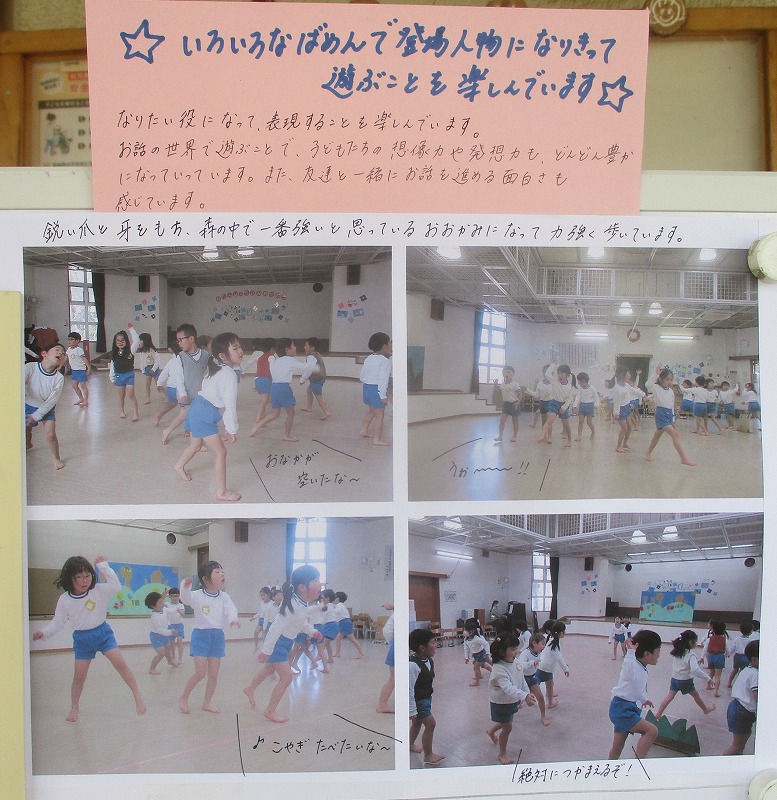 ☆いろいろなばめんで登場人物になりきって
遊ぶことを楽しんでいます☆
なりたい役になって、表現することも楽しんでいます。
お話の世界で遊ぶことで、子どもたちの想像力や発想力も、どんどん豊か
になっていっています。また、友達と一緒にお話を進める面白さも
感じています。
鋭い爪と牙をもち、森の中で一番強いと思っているおおかみになって力強く歩いています。
おなかが
空いたな～
うお～～～!!
♪こやぎたべたいな～
絶対につかまえるぞ!